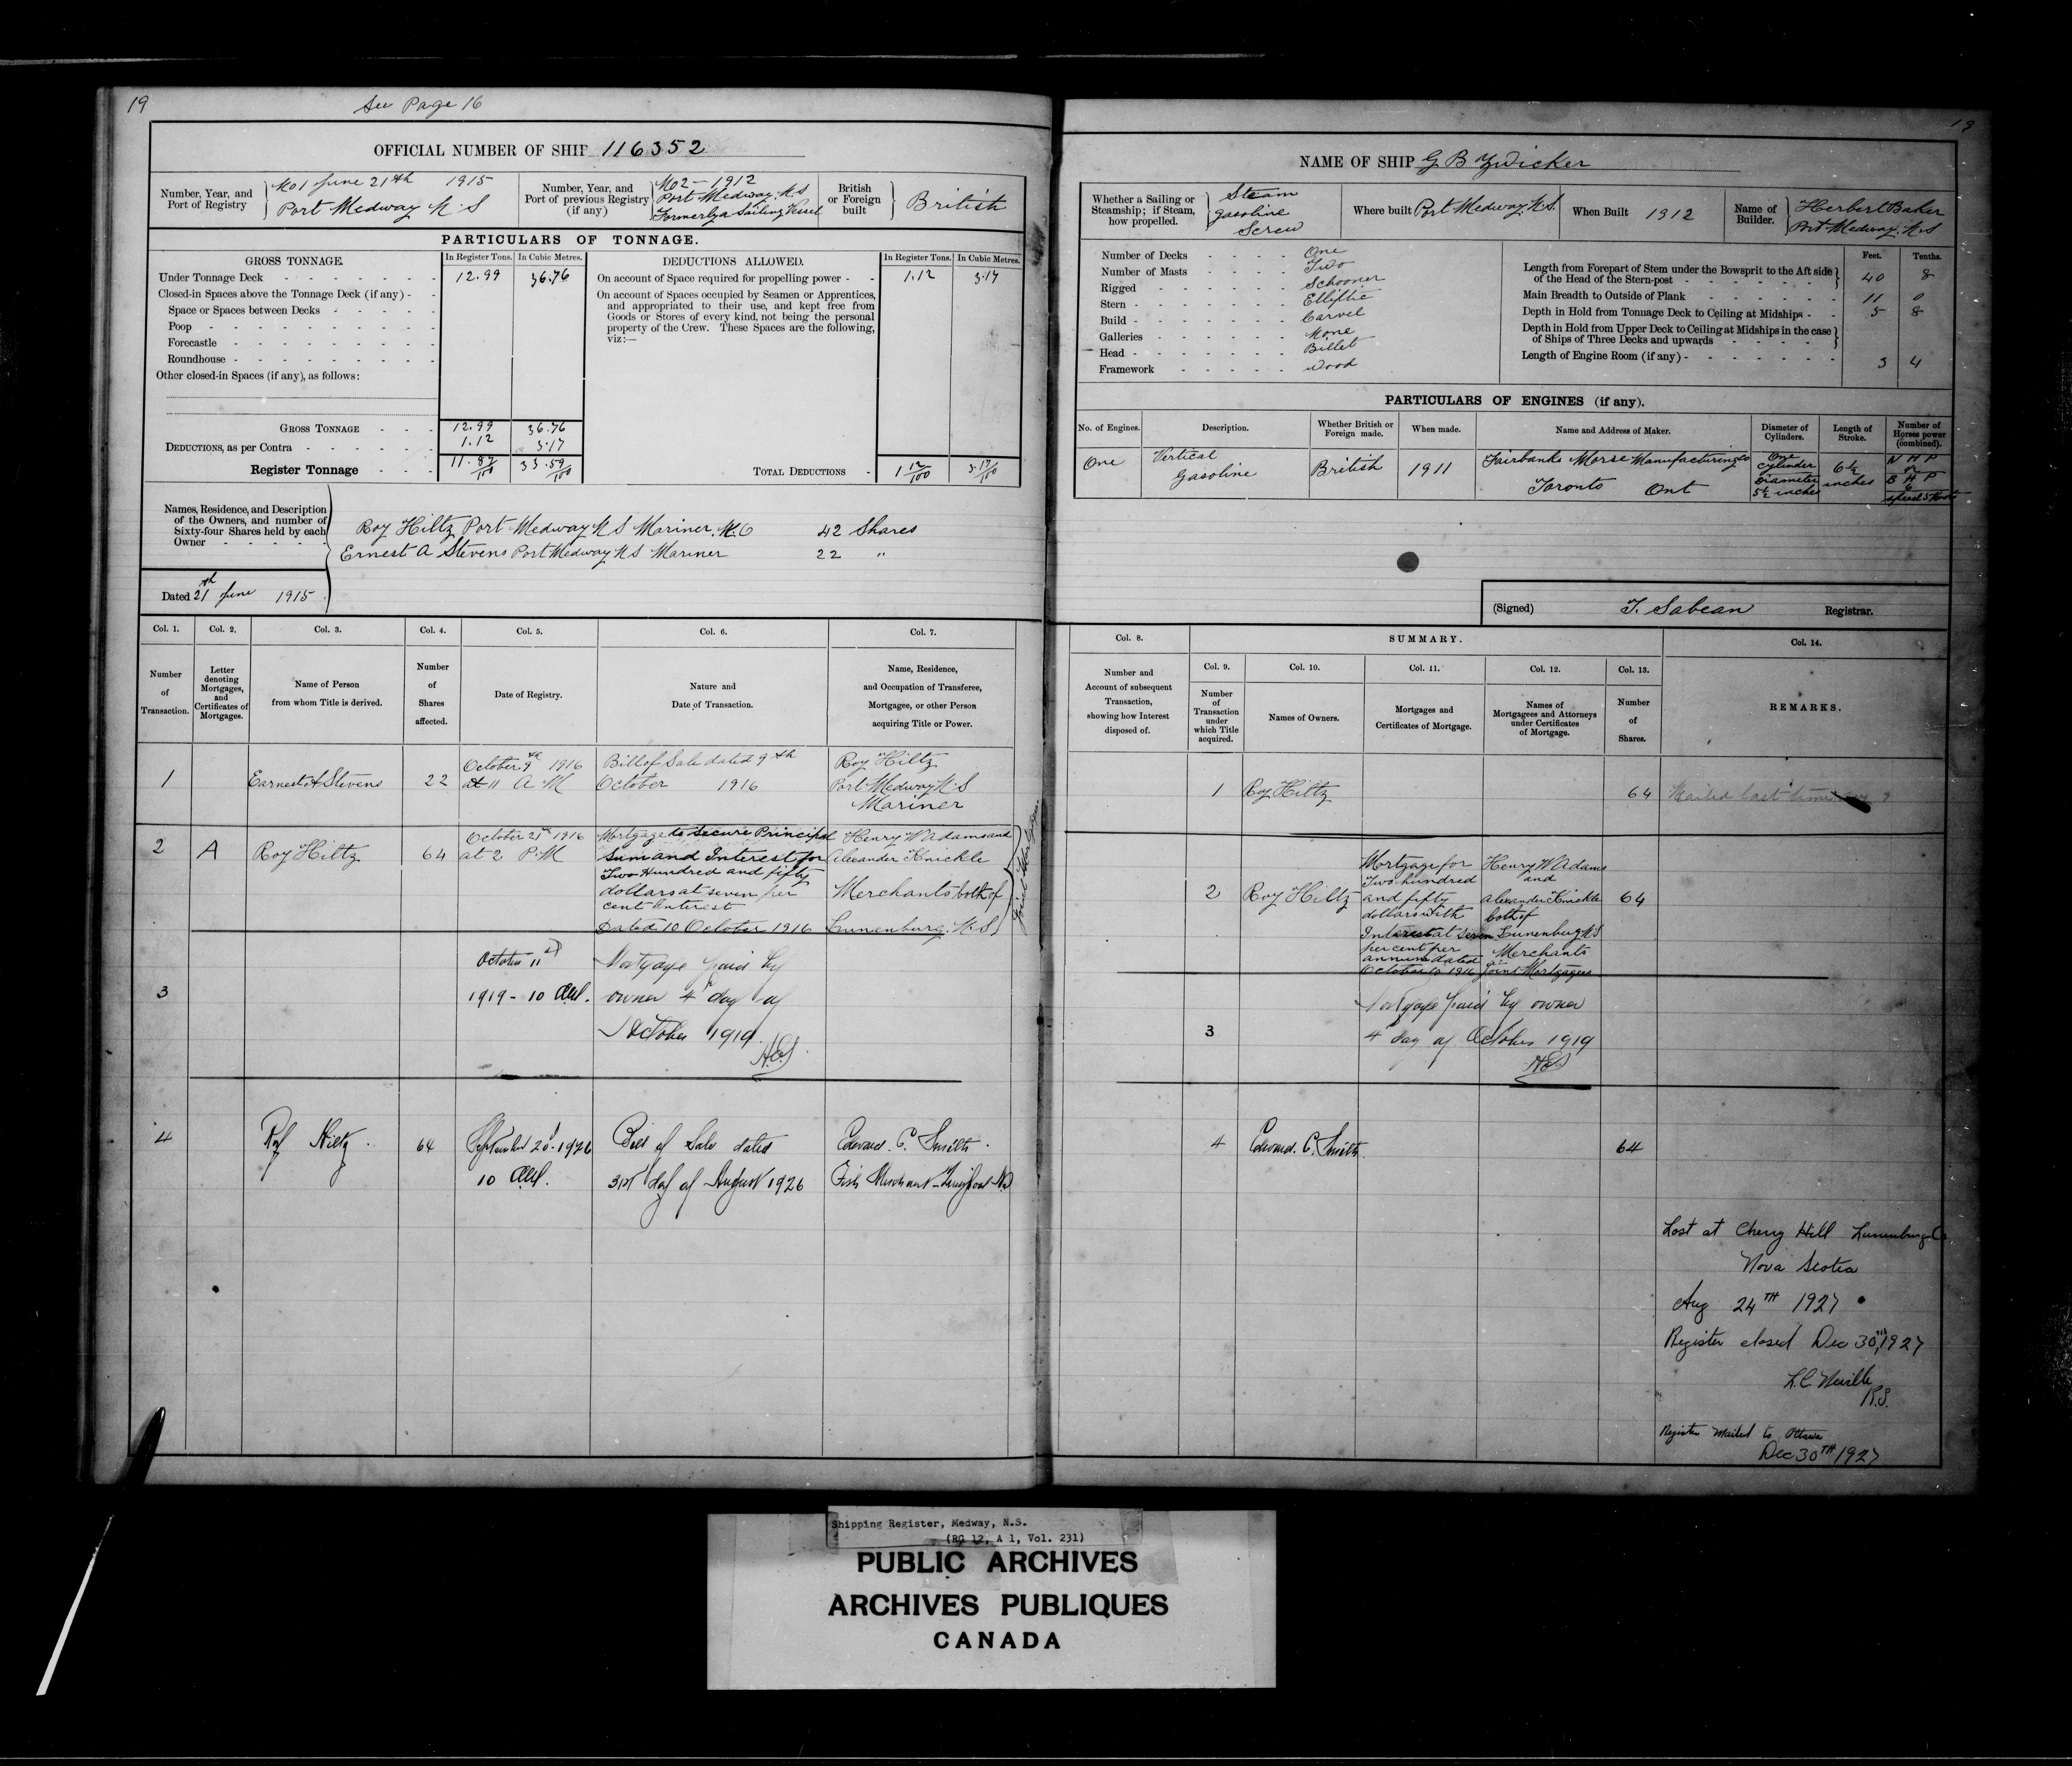 19
See Page 16
OFFICIAL NUMBER OF SHIP 116352
Number, Year, and
Port of Registry
No 1 June 21th 1915
Port Medway N.S
Number, Year, and
Port of previous Registry
(if any)
No 2 - 1912
Port Medway. N.S
Formerly a Sailing Vessel
British
or Foreign
built
British
PARTICULARS OF TONNAGE.
GROSS TONNAGE.
In Register Tons.
In Cubic Metres.
DEDUCTIONS ALLOWED.
In Register Tons.
In Cubic Metres.
Under Tonnage Deck 12.99 36.76
Closed-in Spaces above the Tonnage Deck (if any)
Space or Spaces between Decks
Poop
Forecastle
Roundhouse
Other closed-in Spaces (if any), as follows:
On account of Space required for propelling power 1.12 3.17
On account of Spaces occupied by Seamen or Apprentices,
and appropriated to their use, and kept free from
Goods or Stores of every kind, not being the personal
property of the Crew. These Spaces are the following,
viz:—
GROSS TONNAGE 12.99 36.76
DEDUCTIONS, as per Contra 1.12 3.17
Register Tonnage 11.87/100 33.59/100
TOTAL DEDUCTIONS 1 12/100 3.17/100
Names, Residence, and Description
of the Owners, and number of
Sixty-four Shares held by each
Owner
Roy Hiltz Port Medway N S Mariner. M.O 42 Shares
Ernest A Stevens Port Medway N S Mariner 22 "
Dated 21th June 1915
Col. 1.
Col. 2.
Col. 3.
Col. 4.
Col. 5.
Col. 6.
Col. 7.
Number
of
Transaction.
Letter
denoting
Mortgages,
and
Certificates of
Mortgages.
Name of Person
from whom Title is derived.
Number
of
Shares
affected.
Date of Registry.
Nature and
Date of Transaction.
Name, Residence,
and Occupation of Transferee,
Mortgagee, or other Person
acquiring Title or Power.
1
Earnest A Stevens
22
October 9th 1916
at 11 A M
Bill of Sale dated 9th
October 1916
Roy Hiltz
Port Medway N.S
Mariner
2
A
Roy Hiltz
64
October 21st 1916
at 2 P.M
Mortgage to Secure Principal
Sum and Interest for
Two Hundred and fifty
dollars at seven per
cent Interest
Dated 10 October 1916
Henry W Adams and
Alexander Knickle
Merchants both of
Lunenburg. N.S
Joint
3
October 11th
1919 - 10 AM.
Mortgage paid by
owner 4th day of
October 1919
4
Roy Hiltz.
64
September 20th 1926
10 AM.
Bill of Sale dated
31st day of August 1926
Edward. C. Smith.
Fish Merchant - Liverpool NS
19
NAME OF SHIP G B Zwicker
Whether a Sailing or
Steamship; if Steam,
how propelled.
Steam
gasoline
Screw
Where built Port Medway. N.S.
When Built 1912
Name of
Builder.
Herbert Baker
Port Medway. N.S
Number of Decks One
Number of Masts Two
Rigged Schooner
Stern Elliptic
Build Carvel
Galleries None
Head Billet
Framework Wood
Feet. Tenths.
Length from Forepart of Stem under the Bowsprit to the Aft side
of the Head of the Stern-post 40 8
Main Breadth to Outside of Plank 11 0
Depth in Hold from Tonnage Deck to Ceiling at Midships 5 8
Depth in Hold from Upper Deck to Ceiling at Midships in the case
of Ships of Three Decks and upwards
Length of Engine Room (if any) 3 4
PARTICULARS OF ENGINES (if any).
No. of Engines.
Description.
Whether British or
Foreign made.
When made.
Name and Address of Maker.
Diameter of
Cylinders.
Length of
Stroke.
Number of
Horses power
(combined).
One
Vertical
Gasoline
British
1911
Fairbanks Morse Manufacturing Co
Toronto Ont
One
cylinder
Diameter
5½ inches
6½
inches
N H P
or
B H P
6
Speed 5 Knots
(Signed) T. Sabean Registrar.
Col. 8.
SUMMARY.
Col. 14.
Col. 9.
Col. 10.
Col. 11.
Col. 12.
Col. 13.
Number and
Account of subsequent
Transaction,
showing how Interest
disposed of.
Number
of
Transaction
under
which Title
acquired.
Names of Owners.
Mortgages and
Certificates of Mortgage.
Names of
Mortgagees and Attorneys
under Certificates
of Mortgage.
Number
of
Shares.
REMARKS.
1
Roy Hiltz
64
Mailed last time
2
Roy Hiltz
Mortgage for
Two hundred
and fifty
dollars with
Interest at seven
per cent per
annum dated
October 10 1916
Henry W Adams
and
Alexander Knickle
both of
Lunenburg N S
Merchants
Joint Mortgagees
64
3
Mortgage paid by owner
4th day of October 1919
4
Edward. C. Smith
64
Lost at Cherry Hill Lunenburg Co
Nova Scotia
Aug 24TH 1927
Register closed Dec 30TH, 1927
R.S.
Register mailed to Ottawa
Dec 30TH 1927
Shipping Register, Medway, N.S.
(RG 12, A 1, Vol. 231)
PUBLIC ARCHIVES
ARCHIVES PUBLIQUES
CANADA